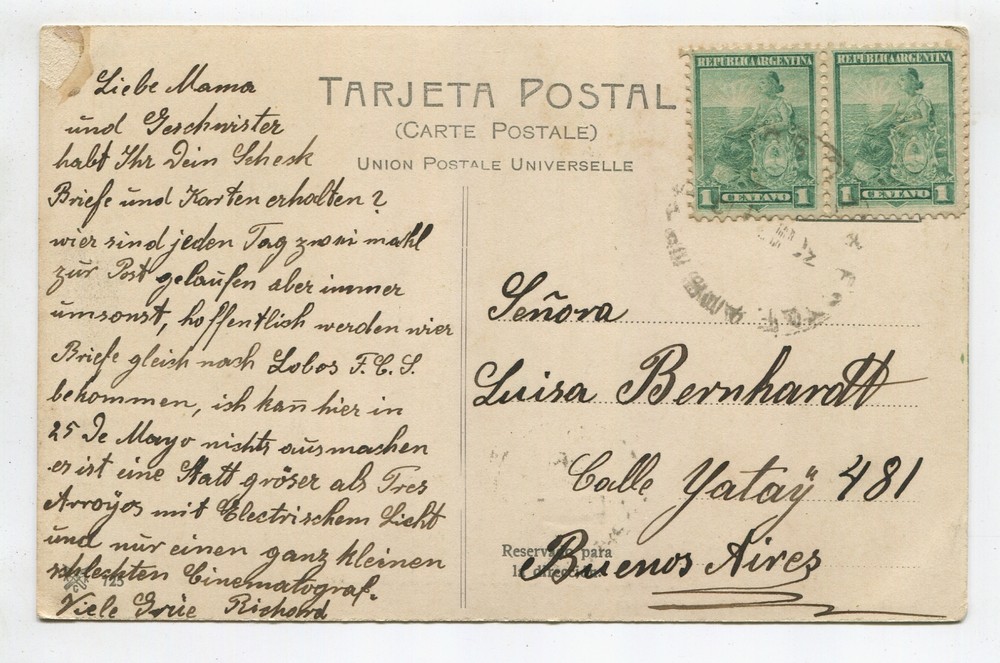 Liebe Mama
und Geschwister
habt Ihr Dein Scheck
Briefe und Karten erhalten?
wier sind jeden Tag zwei mahl
zur Post gelaufen aber immer
umsonst, hoffentlich werden wier
Briefe gleich nach Lobos F.C.S.
bekommen, ich kan̄ hier in
25 De Mayo nichts ausmachen
es ist eine Statt gröser als Tres
Arroÿos mit Electrischem Licht
und nur einen ganz kleinen
schlechten Cinematograf.
Viele Grüe Richard
125
TARJETA POSTAL
(CARTE POSTALE)
UNION POSTALE UNIVERSELLE
REPUBLICA ARGENTINA
1 CENTAVO 1
REPUBLICA ARGENTINA
1 CENTAVO 1
Señora
Luisa Bernhardt
Calle Yataÿ 481
Reservado para
la dirección
Buenos Aires